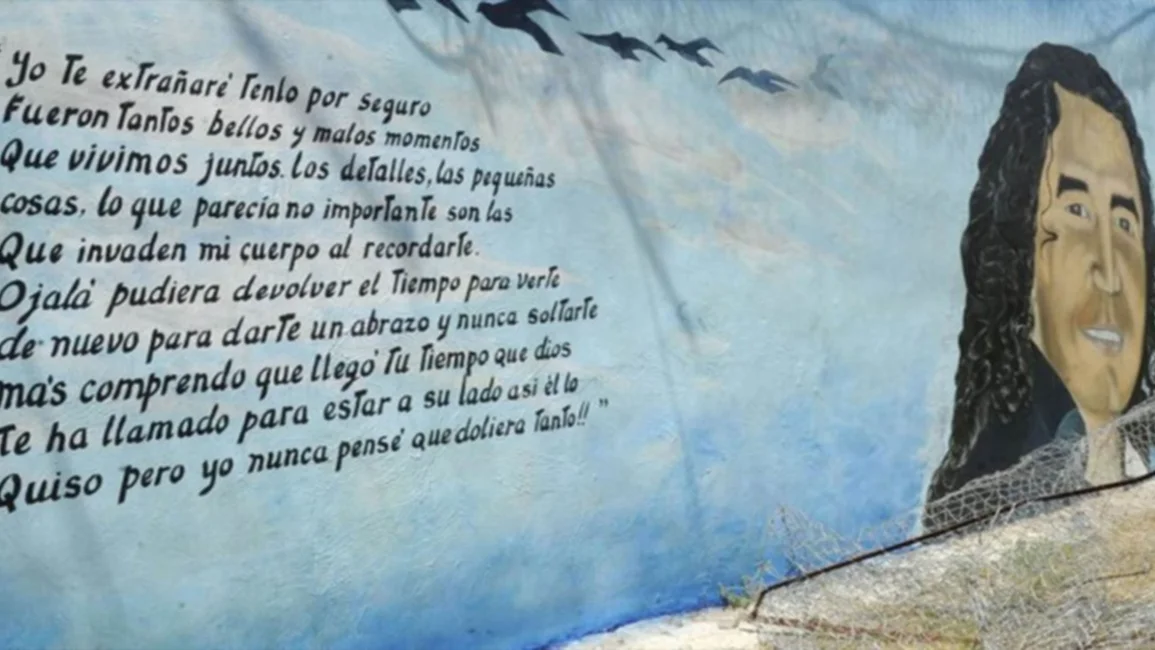 "Yo Te exTrañaré Tenlo por seguro
Fueron TanTos bellos y malos momenTos
Que vivimos junTos. Los deTalles, las pequeñas
cosas, lo que parecía no imporTanTe son las
Que invaden mi cuerpo al recordarTe.
Ojalá pudiera devolver el Tiempo para verTe
de nuevo para darTe un abrazo y nunca solTarTe
más comprendo que llegó Tu Tiempo que dios
Te ha llamado para esTar a su lado asi èl lo
Quiso pero yo nunca pensé que doliera TanTo!! "